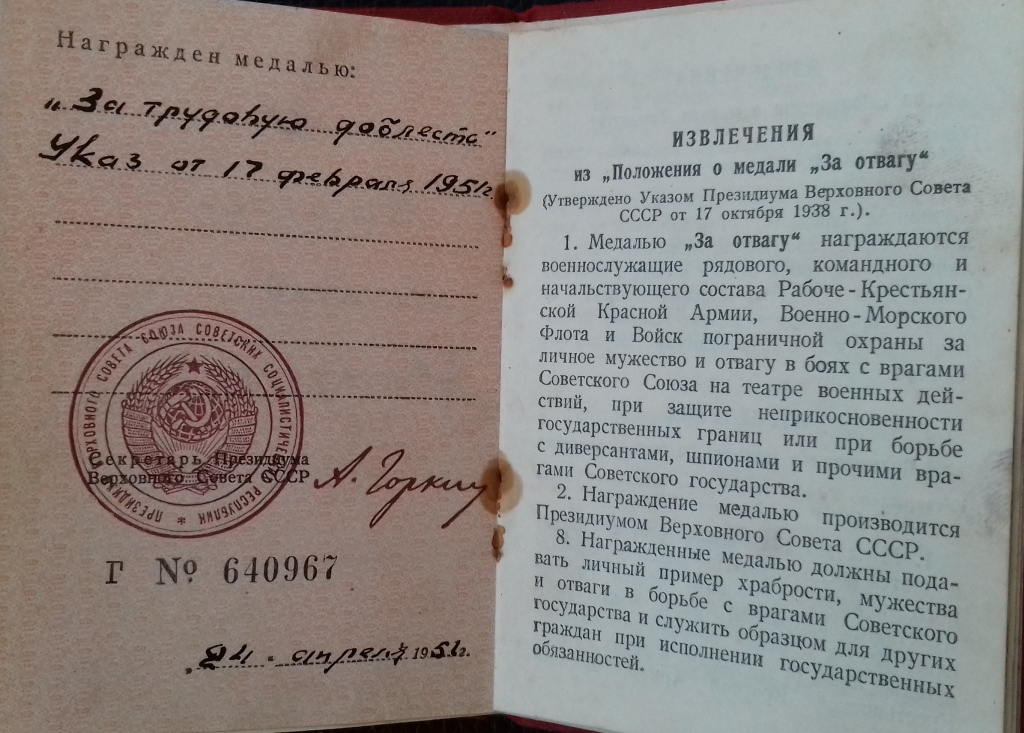 Награжден медалью:
„За трудовую доблесть“
Указ от 17 февраля 1951г.
ПРЕЗИДИУМ ВЕРХОВНОГО СОВЕТА СОЮЗА СОВЕТСКИХ СОЦИАЛИСТИЧЕСКИХ РЕСПУБЛИК
Секретарь Президиума
Верховного Совета СССР
А. Горкин
Г № 640967
„24“ апреля 1951г.
ИЗВЛЕЧЕНИЯ
из „Положения о медали „За отвагу“
(Утверждено Указом Президиума Верховного Совета
СССР от 17 октября 1938 г.).
1. Медалью „За отвагу“ награждаются
военнослужащие рядового, командного и
начальствующего состава Рабоче-Крестьян-
ской Красной Армии, Военно-Морского
Флота и Войск пограничной охраны за
личное мужество и отвагу в боях с врагами
Советского Союза на театре военных дей-
ствий, при защите неприкосновенности
государственных границ или при борьбе
с диверсантами, шпионами и прочими вра-
гами Советского государства.
2. Награждение медалью производится
Президиумом Верховного Совета СССР.
8. Награжденные медалью должны пода-
вать личный пример храбрости, мужества
и отваги в борьбе с врагами Советского
государства и служить образцом для других
граждан при исполнении государственных
обязанностей.